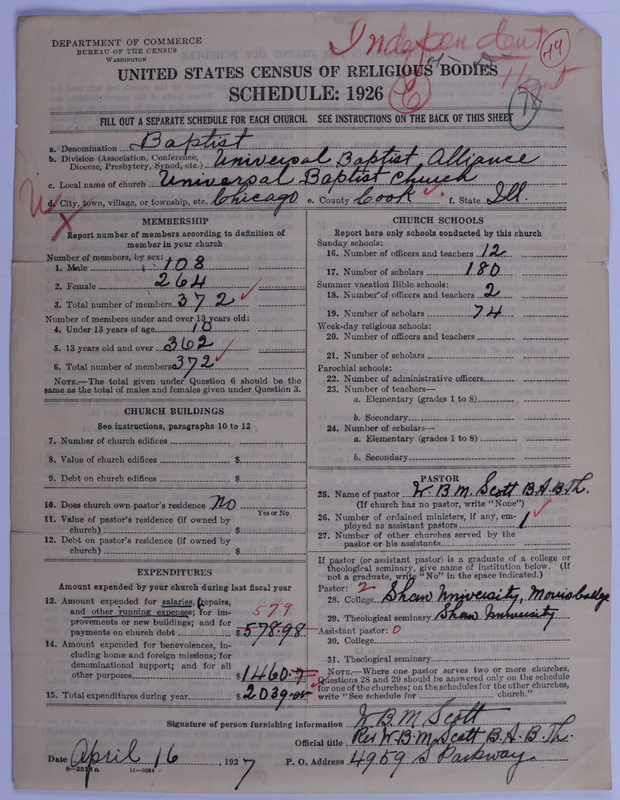 DEPARTMENT OF COMMERCE
BUREAU OF THE CENSUS
WASHINGTON
Independent
49
UNITED STATES CENSUS OF RELIGIOUS BODIES
SCHEDULE: 1926
FILL OUT A SEPARATE SCHEDULE FOR EACH CHURCH. SEE INSTRUCTIONS ON THE BACK OF THIS SHEET
a. Denomination Baptist
b. Division (Association, Conference, Diocese, Presbytery, Synod, etc.) Universal Baptist Alliance
c. Local name of church Universal Baptist Church
d. City, town, village, or township, etc. Chicago e. County Cook f. State Ill.
MEMBERSHIP
Report number of members according to definition of
member in your church
Number of members, by sex:
1. Male 108
2. Female 264
3. Total number of members 372
Number of members under and over 13 years old:
4. Under 13 years of age 10
5. 13 years old and over 362
6. Total number of members 372
NOTE.—The total given under Question 6 should be the
same as the total of males and females given under Question 3.
CHURCH BUILDINGS
See instructions, paragraphs 10 to 12
7. Number of church edifices
8. Value of church edifices $
9. Debt on church edifices $
10. Does church own pastor's residence No
Yes or No
11. Value of pastor's residence (if owned by
church) $
12. Debt on pastor's residence (if owned by
church) $
EXPENDITURES
Amount expended by church during last fiscal year
13. Amount expended for salaries, repairs,
and other running expenses; for im-
provements or new buildings; and for
payments on church debt $ 578.98
579
14. Amount expended for benevolences, in-
cluding home and foreign missions; for
denominational support; and for all
other purposes $ 1460.
15. Total expenditures during year $ 2039.
CHURCH SCHOOLS
Report here only schools conducted by this church
Sunday schools:
16. Number of officers and teachers 12
17. Number of scholars 180
Summer vacation Bible schools:
18. Number of officers and teachers 2
19. Number of scholars 74
Week-day religious schools:
20. Number of officers and teachers
21. Number of scholars
Parochial schools:
22. Number of administrative officers
23. Number of teachers—
a. Elementary (grades 1 to 8)
b. Secondary
24. Number of scholars—
a. Elementary (grades 1 to 8)
b. Secondary
PASTOR
25. Name of pastor W. B. M. Scott B.A. B.Th.
(If church has no pastor, write "None")
26. Number of ordained ministers, if any, em-
ployed as assistant pastors 1
27. Number of other churches served by the
pastor or his assistants
If pastor (or assistant pastor) is a graduate of a college or
theological seminary, give name of institution below. (If
not a graduate, write "No" in the space indicated.)
Pastor: 2
28. College Shaw University,
29. Theological seminary Shaw University
Assistant pastor: 0
30. College
31. Theological seminary
NOTE.—Where one pastor serves two or more churches,
Questions 28 and 29 should be answered only on the schedule
for one of the churches; on the schedules for the other churches,
write "See schedule for church."
Signature of person furnishing information W. B. M. Scott
Official title Rev W. B. M. Scott B.A. B.Th.
Date April 16, 1927 P. O. Address 4959 S Parkway
8—5513a 11—9084